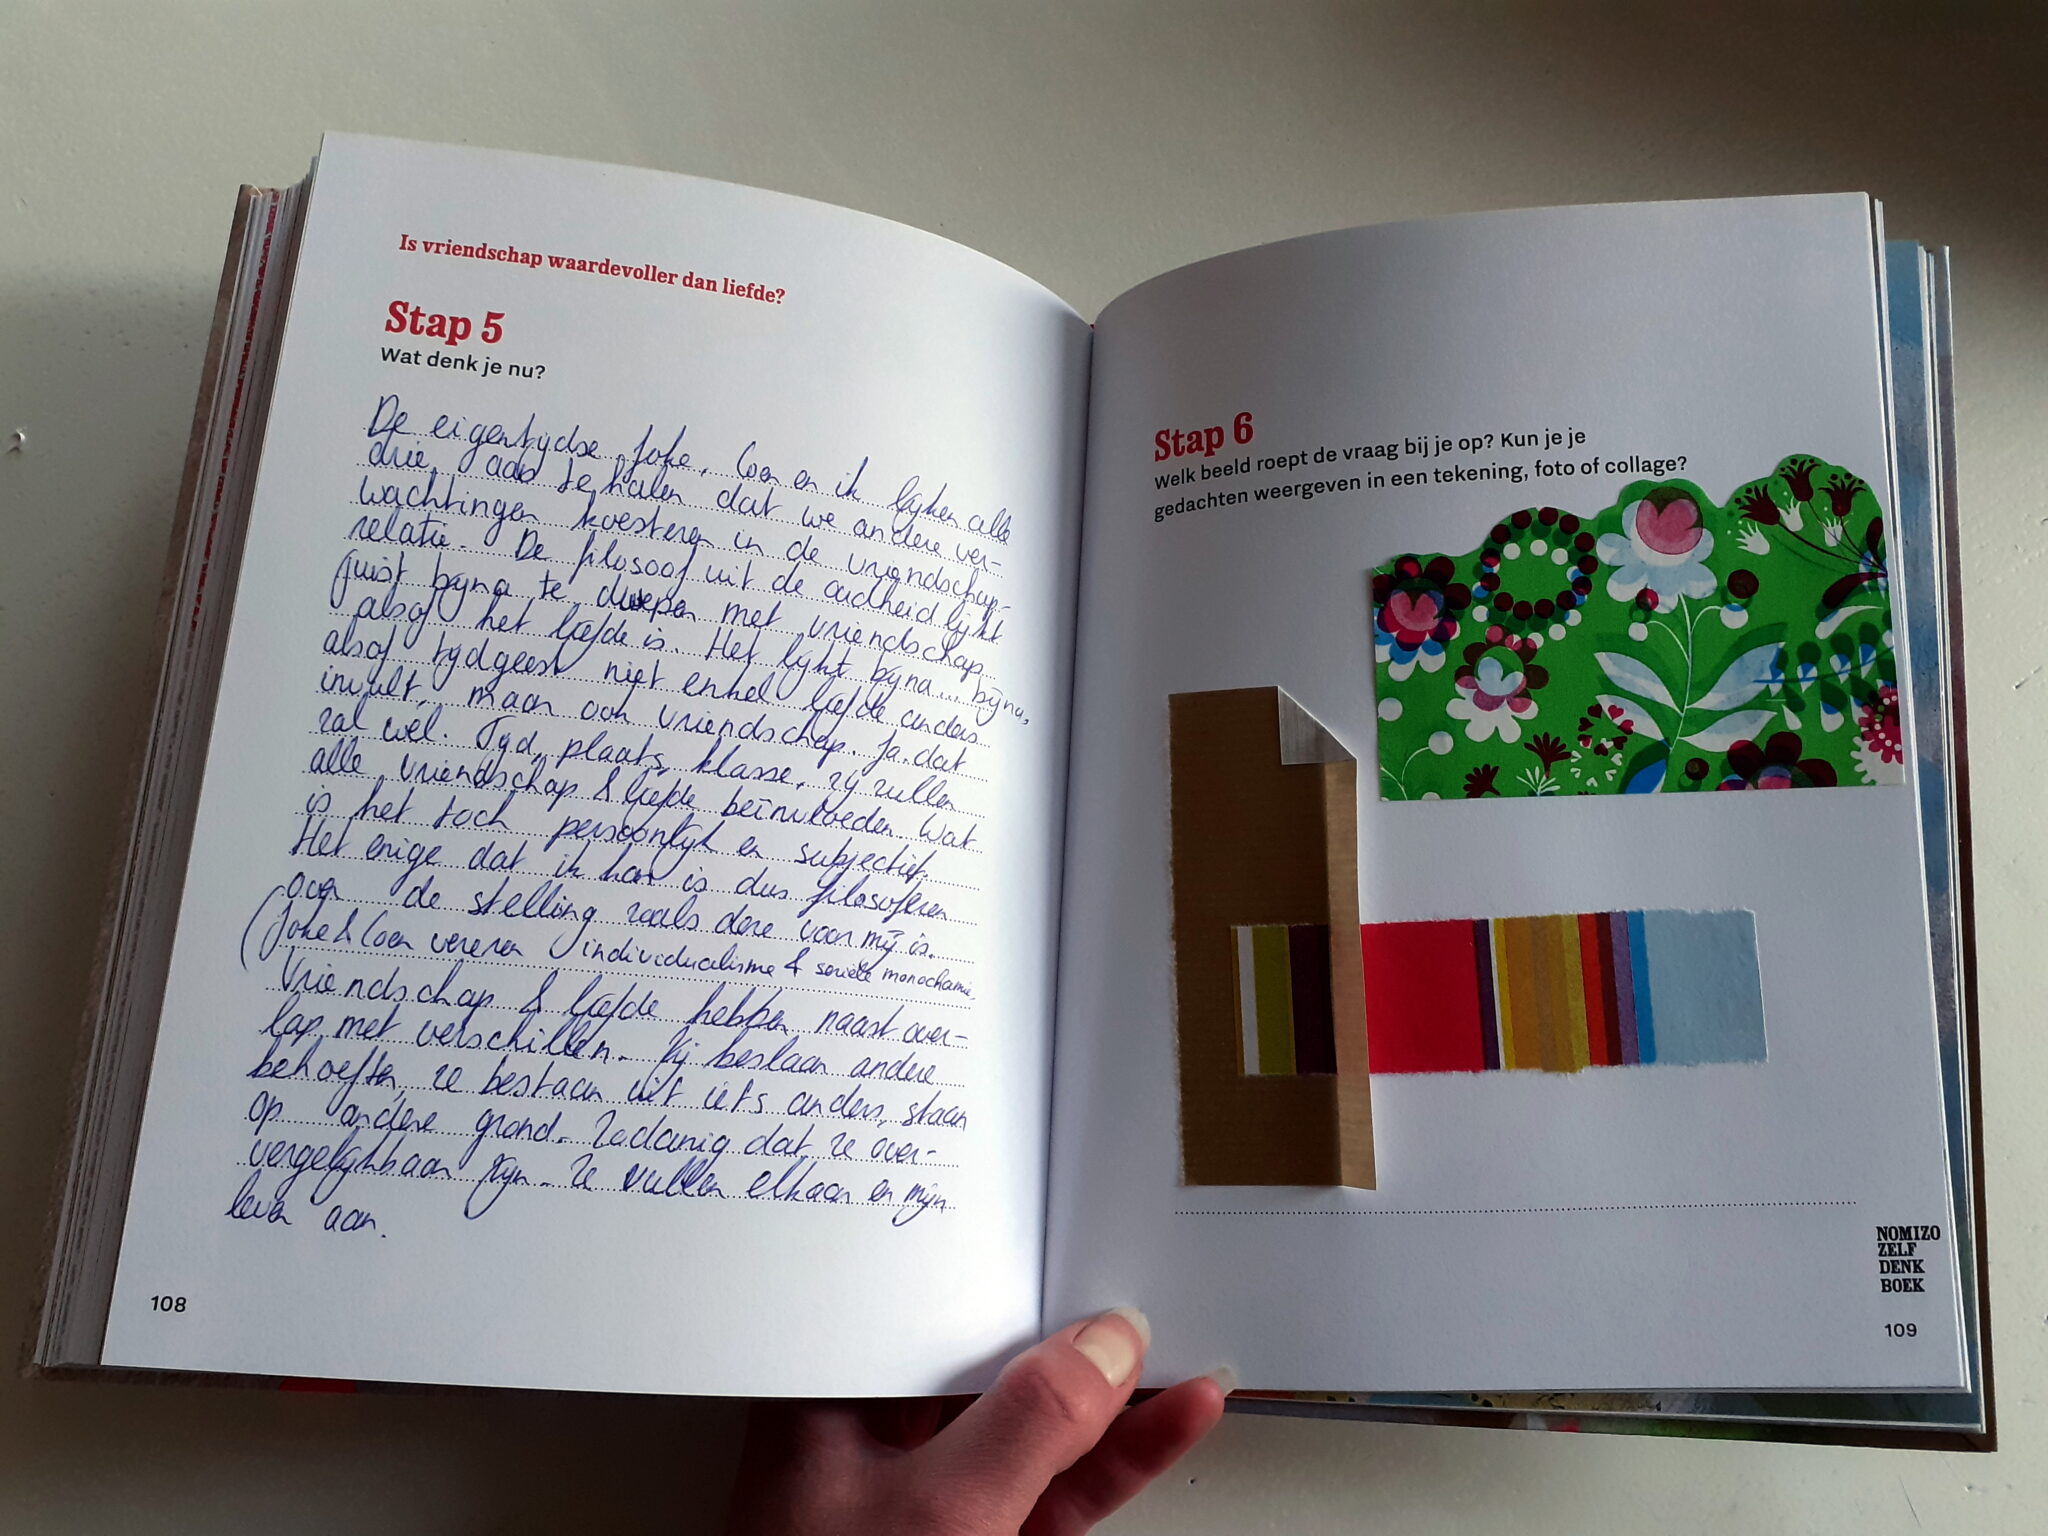 Is vriendschap waardevoller dan liefde?
Stap 5
Wat denk je nu?
De eigentijdse Joke, Coen en ik lijken alle
drie aan te halen dat we andere ver-
wachtingen koesteren in de vriendschap-
relatie. De filosoof uit de oudheid lijkt
juist bijna te dwepen met vriendschap
alsof het liefde is. Het lijkt bijna... bijna,
alsof tijdgeest niet enkel liefde anders
invult, maar ook vriendschap. Ja. dat
zal wel. Tijd, plaats, klasse, zij zullen
alle vriendschap & liefde beïnvloeden. Wat
is het toch persoonlijk en subjectief.
Het enige dat ik kan is dus filosoferen
over de stelling zoals deze voor mij is.
(Joke & Coen vereren individualisme & seriële monochamie.
Vriendschap & liefde hebben naast over-
lap met verschillen. Zij beslaan andere
behoeften, ze bestaan uit iets anders, staan
op andere grond. Zodanig dat ze over-
vergelijkbaar zijn. Ze vullen elkaar en mijn
leven aan.
108
Stap 6
Welk beeld roept de vraag bij je op? Kun je je
gedachten weergeven in een tekening, foto of collage?
NOMIZO
ZELF
DENK
BOEK
109